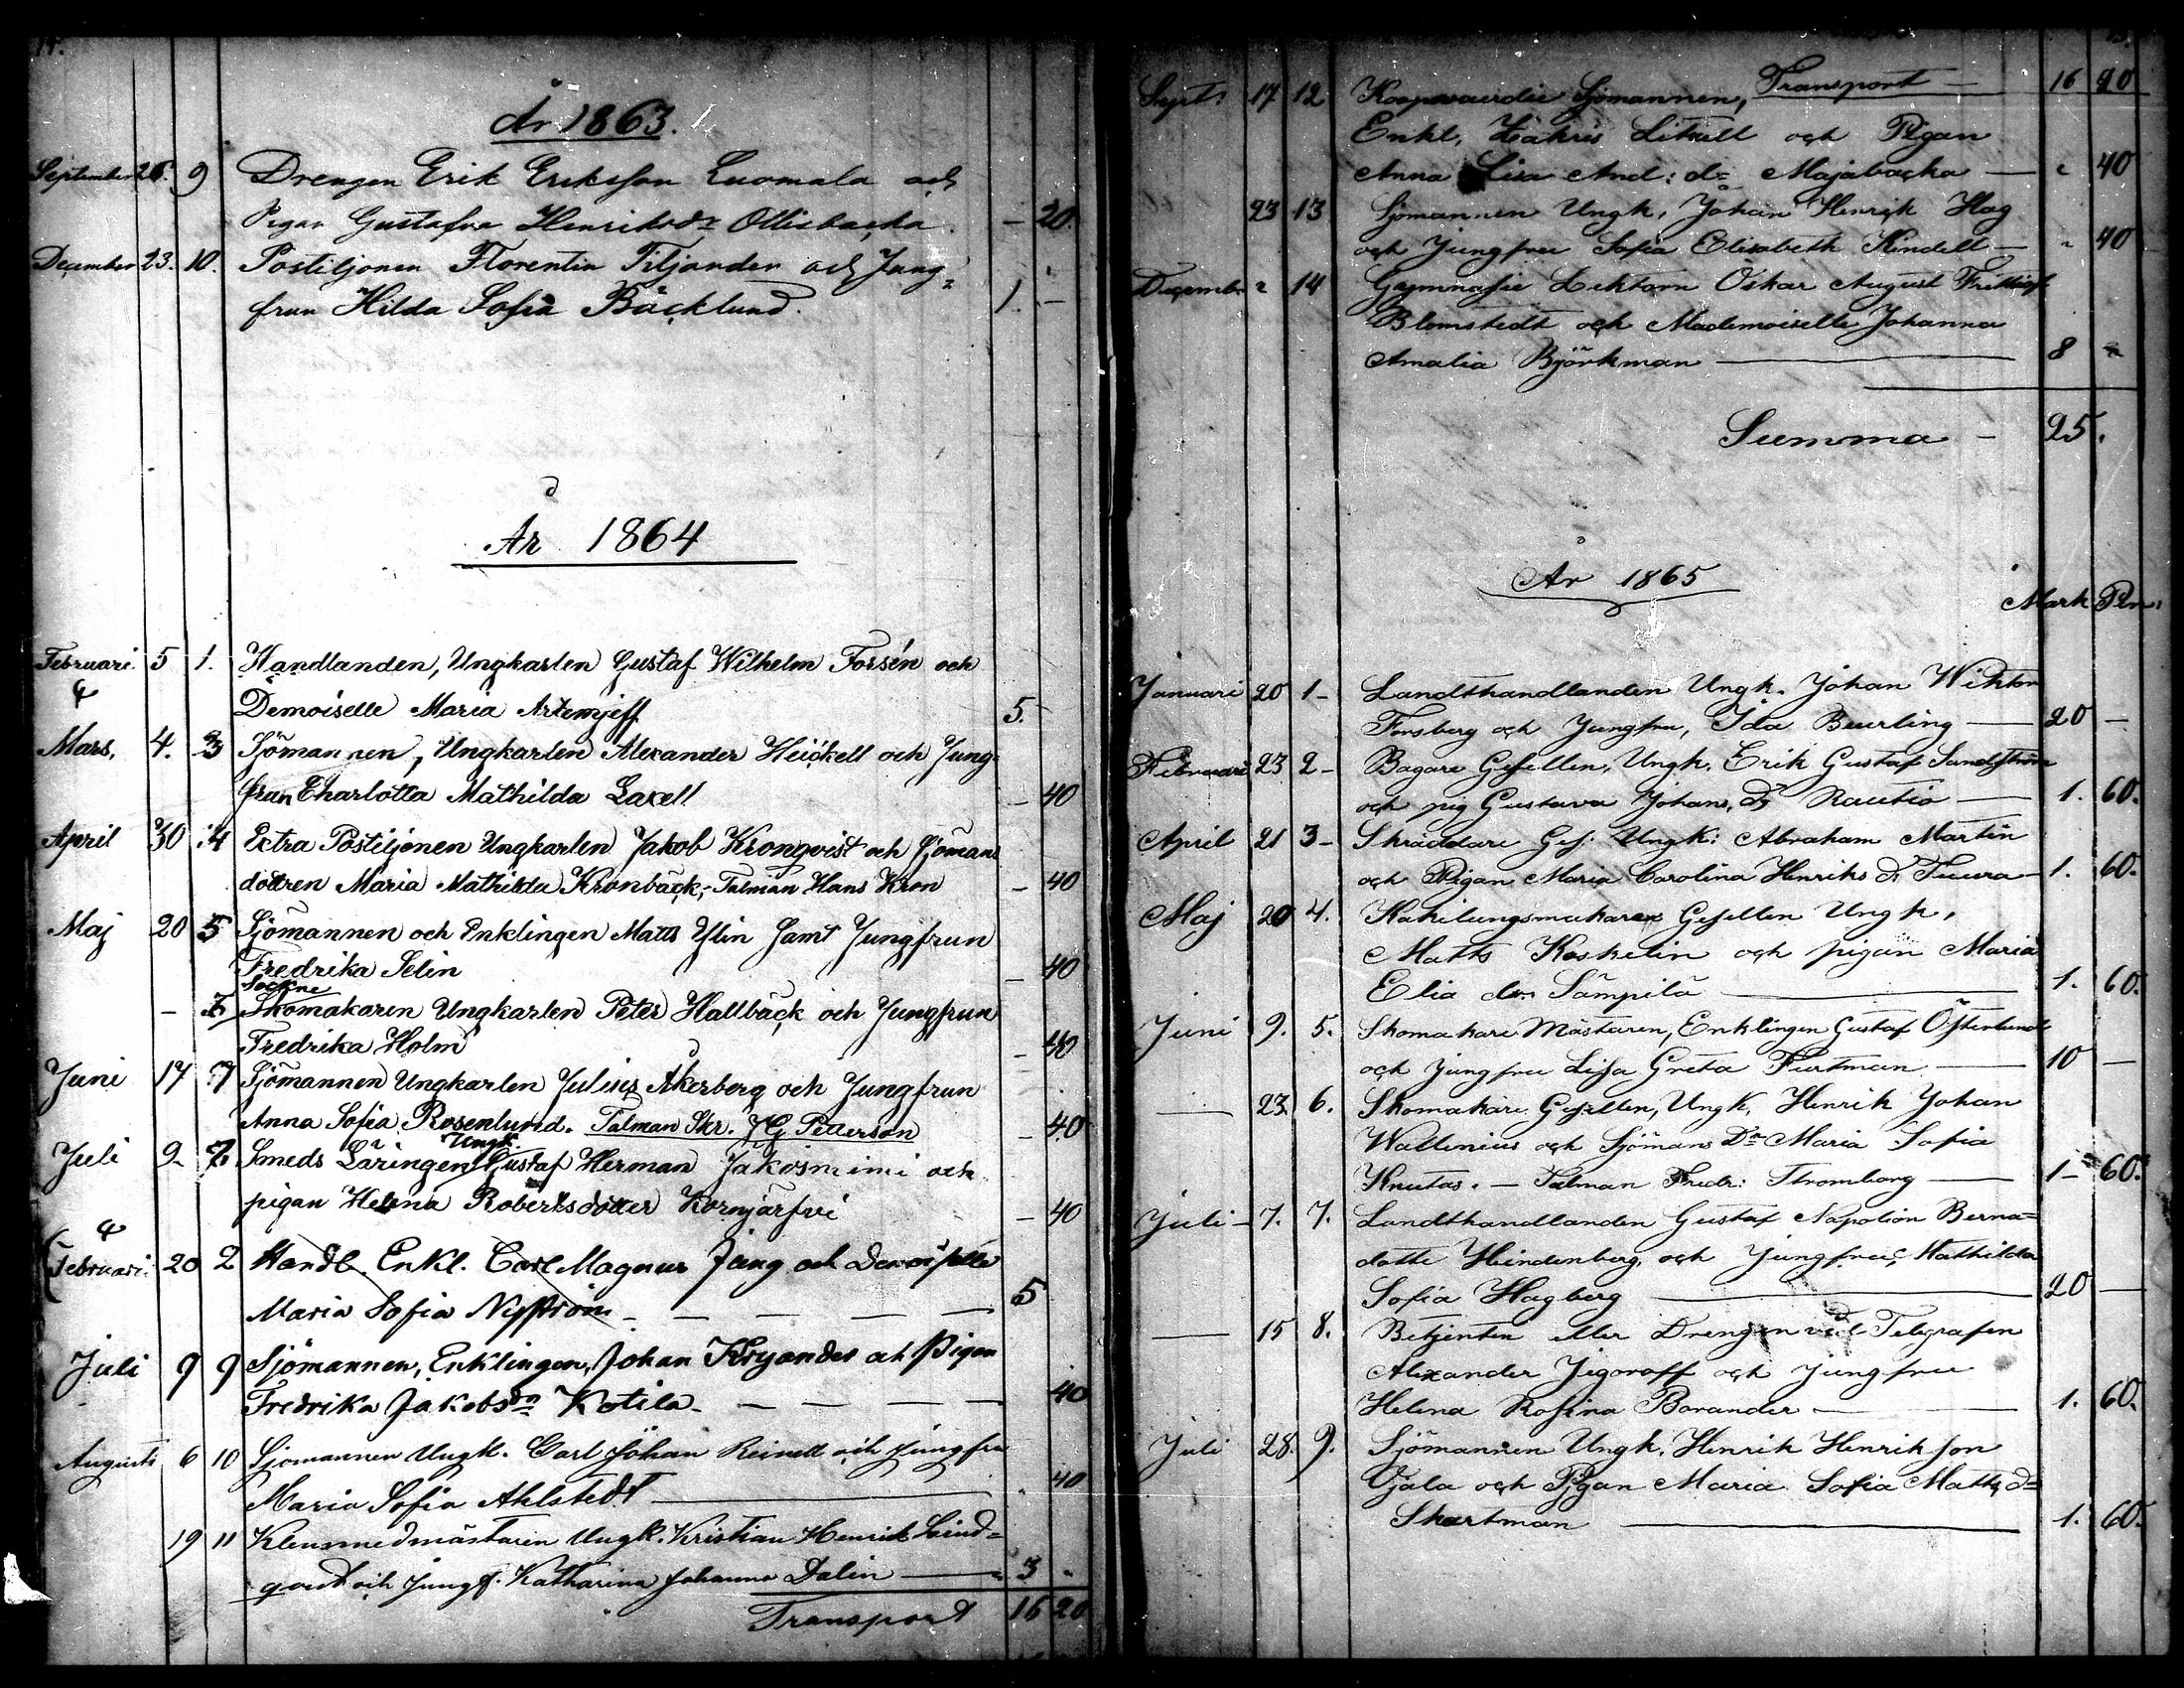 14.
År 1863.
September 26. 9 Drengen Erik Eriksson Luomala och
Pigan Gustafva Henriksdr Ollisbacka. — 20.
December 23. 10. Postiljonen Florentin Tiljander och Jung-
frun Hilda Sofia Bäcklund. 1. —
År 1864
Februari 5 1. Handlanden, Ungkarlen Gustaf Wilhelm Forsén och
Demoiselle Maria Artemjeff 5.
Mars, 4. 3 Sjömannen, Ungkarlen Alexander Heickell och Jung-
frun Charlotta Mathilda Laxell — 40
April 30 4 Extra Postiljonen Ungkarlen Jakob Kronqvist och Sjömans
dottren Maria Mathilda Kronbäck,- Talman Hans Kron — 40
Maj 20 5 Sjömannen och Enklingen Matts Ylin samt Jungfrun
Fredrika Selin — 40
Sockne
— Skomakaren Ungkarlen Peter Hallbäck och Jungfrun
Fredrika Holm — 40
Juni 17 7 Sjömannen Ungkarlen Julius Åkerberg och Jungfrun
Anna Sofia Rosenlund. Talman Skr. J G Petterson — 40
Juli 9- Smeds Läringen Ungk. Gustaf Herman Jakosnimi och
pigan Helena Robertsdotter Kornjärfvi — 40
Februari 20 2 Handl. Enkl. Carl Magnus Jung och Demoiselle
Maria Sofia Nyström — — — — 5
Juli 9 9 Sjömannen, Enklingen, Johan Kryander och Pigan
Fredrika Jakobsdr Kotila — — — — 40
Augusti 6 10 Sjömannen Ungk. Carl Johan Reinell och jungfru
Maria Sofia Ahlstedt — 40
19 11 Klensmedmästaren Ungk. Kristian Henrik Lind-
qvist och Jungf. Katharina Johanna Dalin — 3 "
Transport 16 20
Transport — 16 20
Sept. 17 12 Koopvaerdie Sjömannen,
Enkl. Zakris Litzell och Pigan
Anna Lisa And: dr Majabacka — " 40
23 13 Sjömannen Ungk, Johan Henrik Hag
och Jungfru Sofia Elisabeth Kindell — " 40
Decemb. " 14 Gymnasie Lektorn Oskar August Frithiof
Blomstedt och Mademoiselle Johanna
Amalia Björkman — 8 "
Summa — 25.
År 1865
Mark Pen:
Januari 20 1- Landthandlanden Ungk. Johan Wiktor
Forsberg och Jungfru, Ida Beurling — 20 —
Februari 23 2- Bagare Gesellen, Ungk. Erik Gustaf Sandström
och pig Gustava Johans dr Rautio — 1. 60.
April 21 3- Skräddare Ges: Ungk: Abraham Martin
och Pigan Maria Carolina Henriks dr Tuura — 1. 60.
Maj 20 4. Kakelungsmakare Gesellen Ungk,
Matts Koskelin och pigan Maria
Elia dr Sämpilä — 1. 60.
Juni 9. 5. Skomakare Mästaren, Enklingen Gustaf Österlund
och jungfru Lisa Greta Furtman — 10 —
— 23 6. Skomakare Gesellen, Ungk, Henrik Johan
Wallenius och Sjömans Dr Maria Sofia
Knutas. — Talman Fredr: Stromborg — 1- 60.
Juli — 7. 7. Landthandlanden Gustaf Napoleon Berna-
dotte Heindenberg, och Jungfru, Mathilda
Sofia Hagberg — 20 —
— 15 8. Betjenten eller Drengen vid Telegrafen
Alexander Jigoroff och Jungfru
Helena Rosina Borander — 1. 60.
Juli 28. 9. Sjömannen Ungk, Henrik Henrikson
Ojala och Pigan Maria Sofia Matts d-
Skartman — 1. 60.